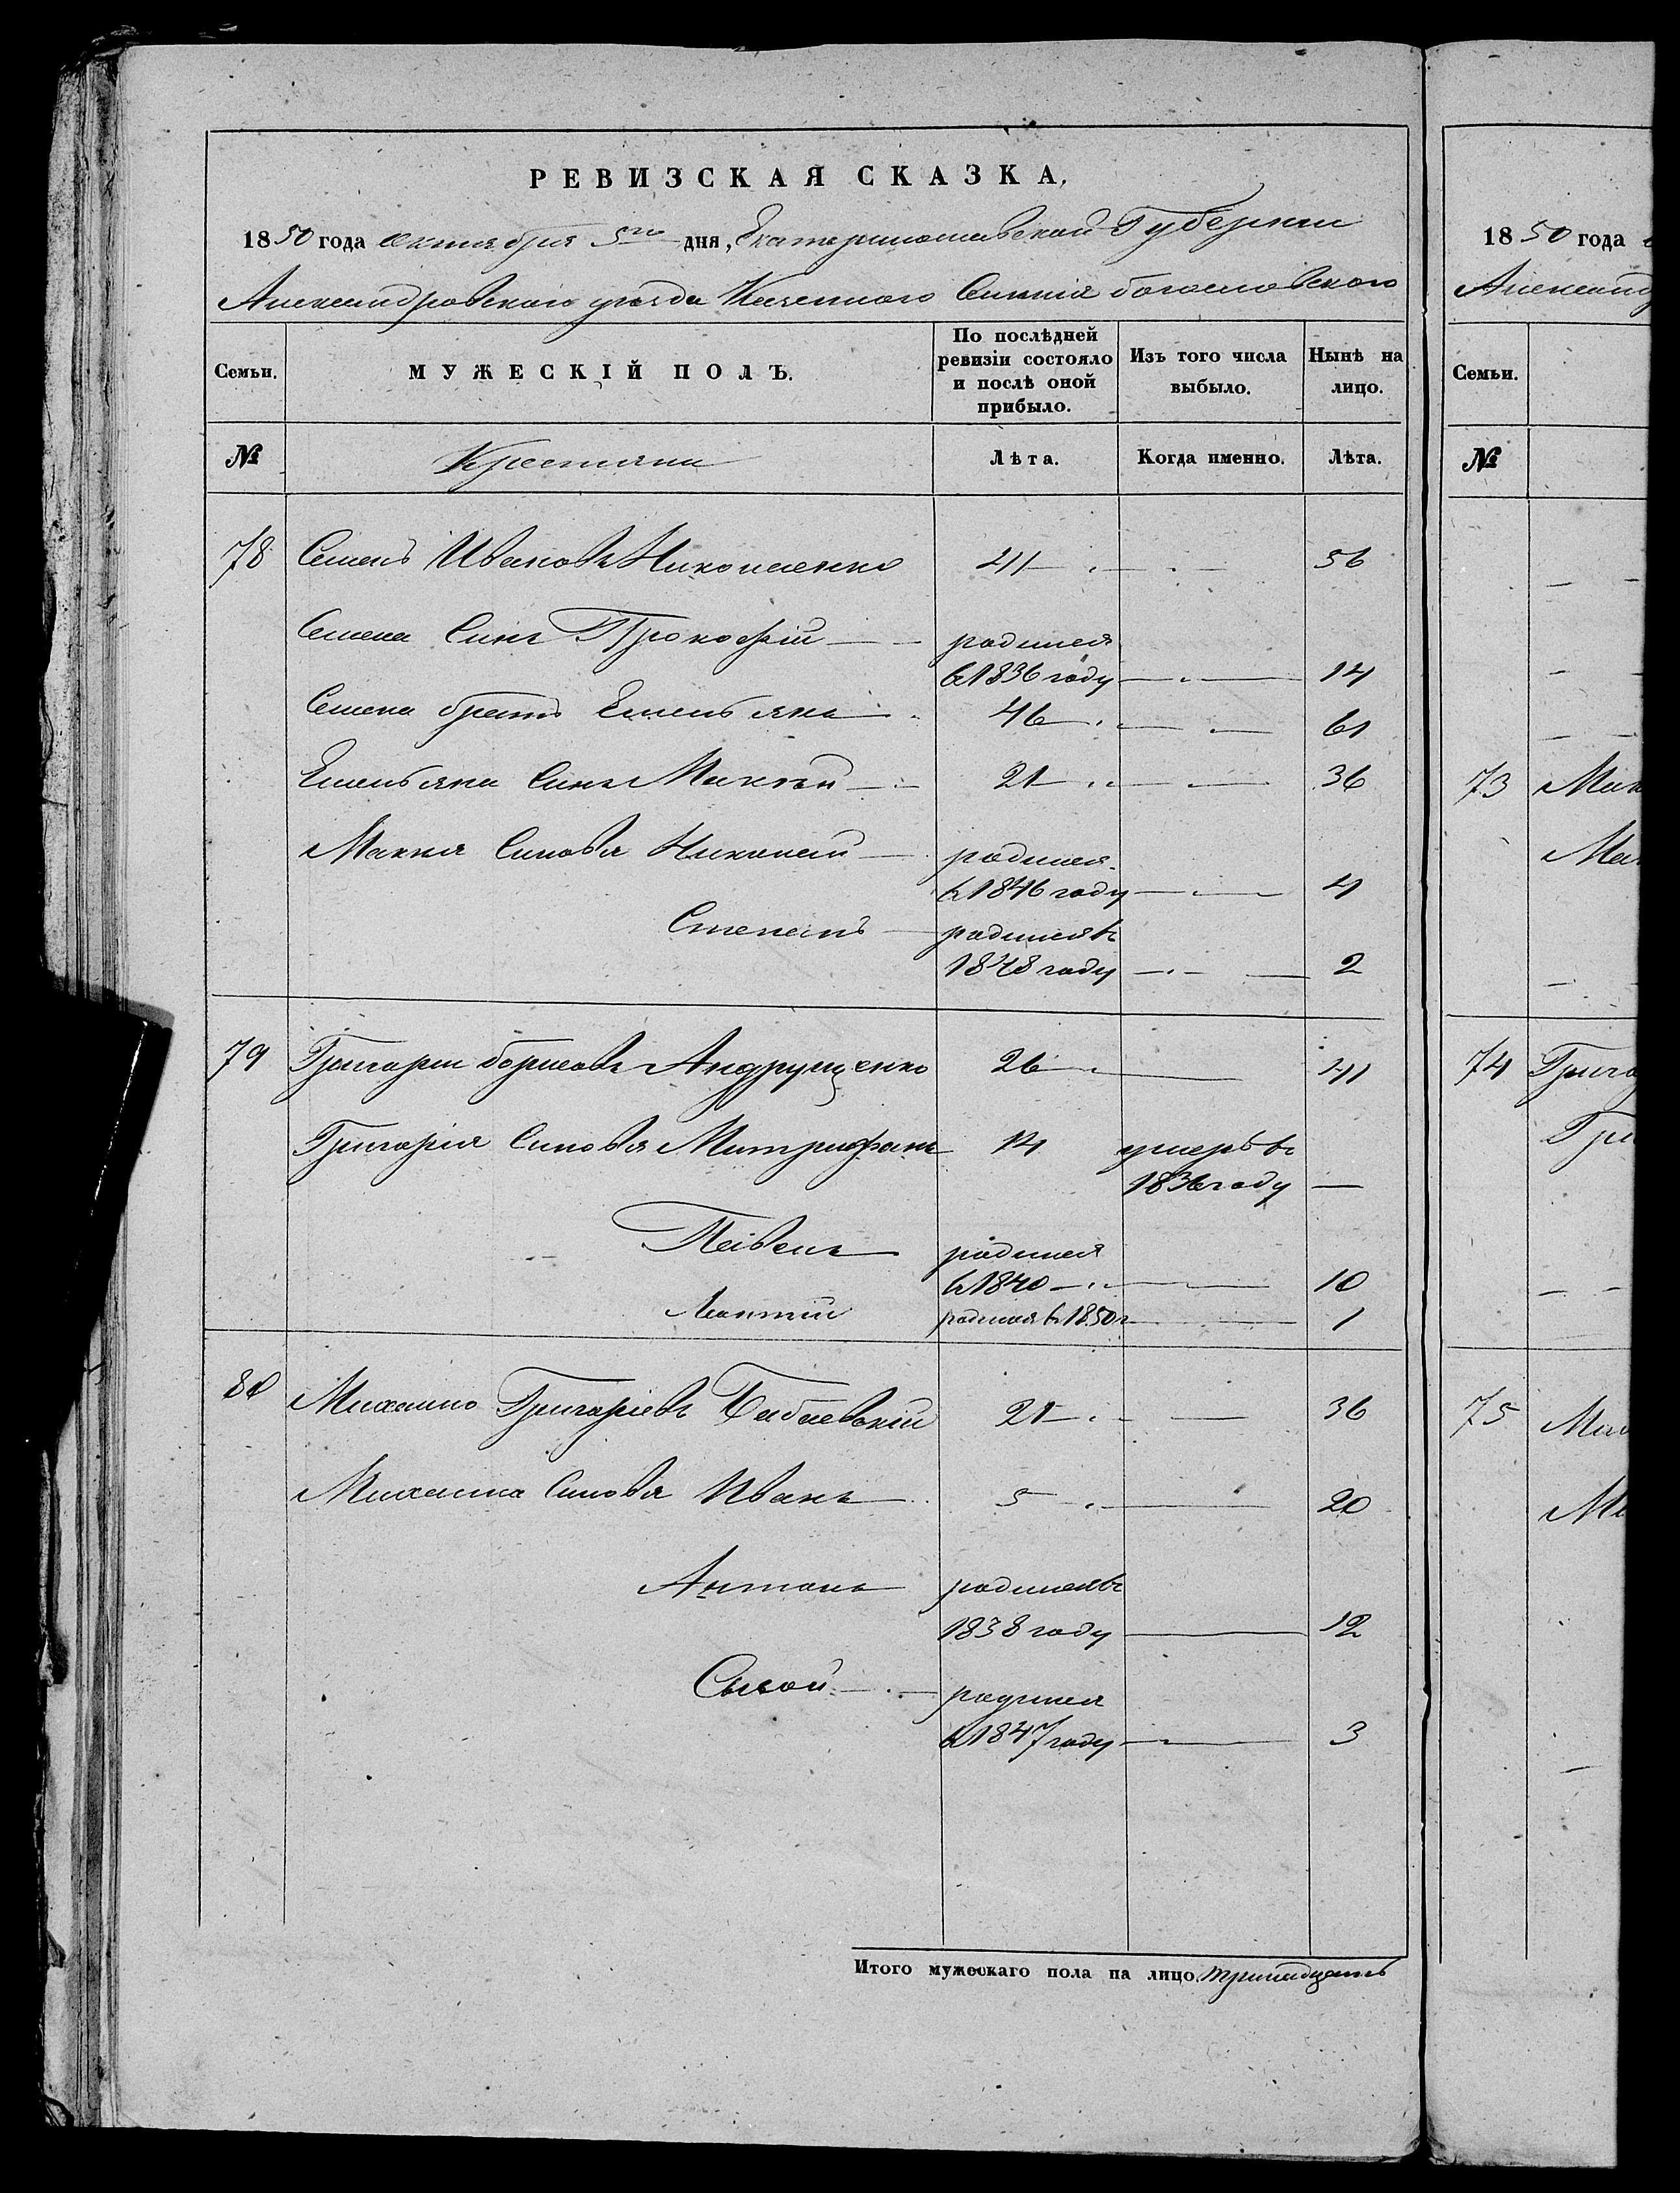 РЕВИЗСКАЯ СКАЗКА.
1850 года октября 5го дня, Екатеринославской Губернии
Александровского уезда Казенного Селенія богословского
Семьи. МУЖЕСКІЙ ПОЛЪ. По послѣдней ревизіи состояло и послѣ оной прибыло. Изъ того числа выбыло. Нынѣ на лицо.
№ Крестяни Лѣта. Когда именно. Лѣта.
78 Семенъ Ивановъ Николаенко 41 56
Семена Синъ Прокофій родился
въ 1836 году 14
Семена братъ Емельянъ 46 61
Емельяна Синъ Макѣй 21 36
Макея Синовя Николай родился
въ 1846 году 4
Степанъ родился въ
1848 году 2
79 Григорій борисовъ Андрущенко 26 41
Григорія Синовя Митрофанъ 14 умеръ въ
1836 году —
Пивень родился
въ 1840 10
Леонтій родился въ 1850 г 1
80 Михайло Григоріевъ Бабаевскій 21 36
Михаила Синовя Иванъ 5 20
Антонъ родился въ
1838 году 12
Сысой родился
въ 1847 году 3
Итого мужескаго пола на лицо. тринадцать
1850 года
Александ
Семьи.
№
73 Мак
Мак
74 Григо
Гри
75 Мих
Ми